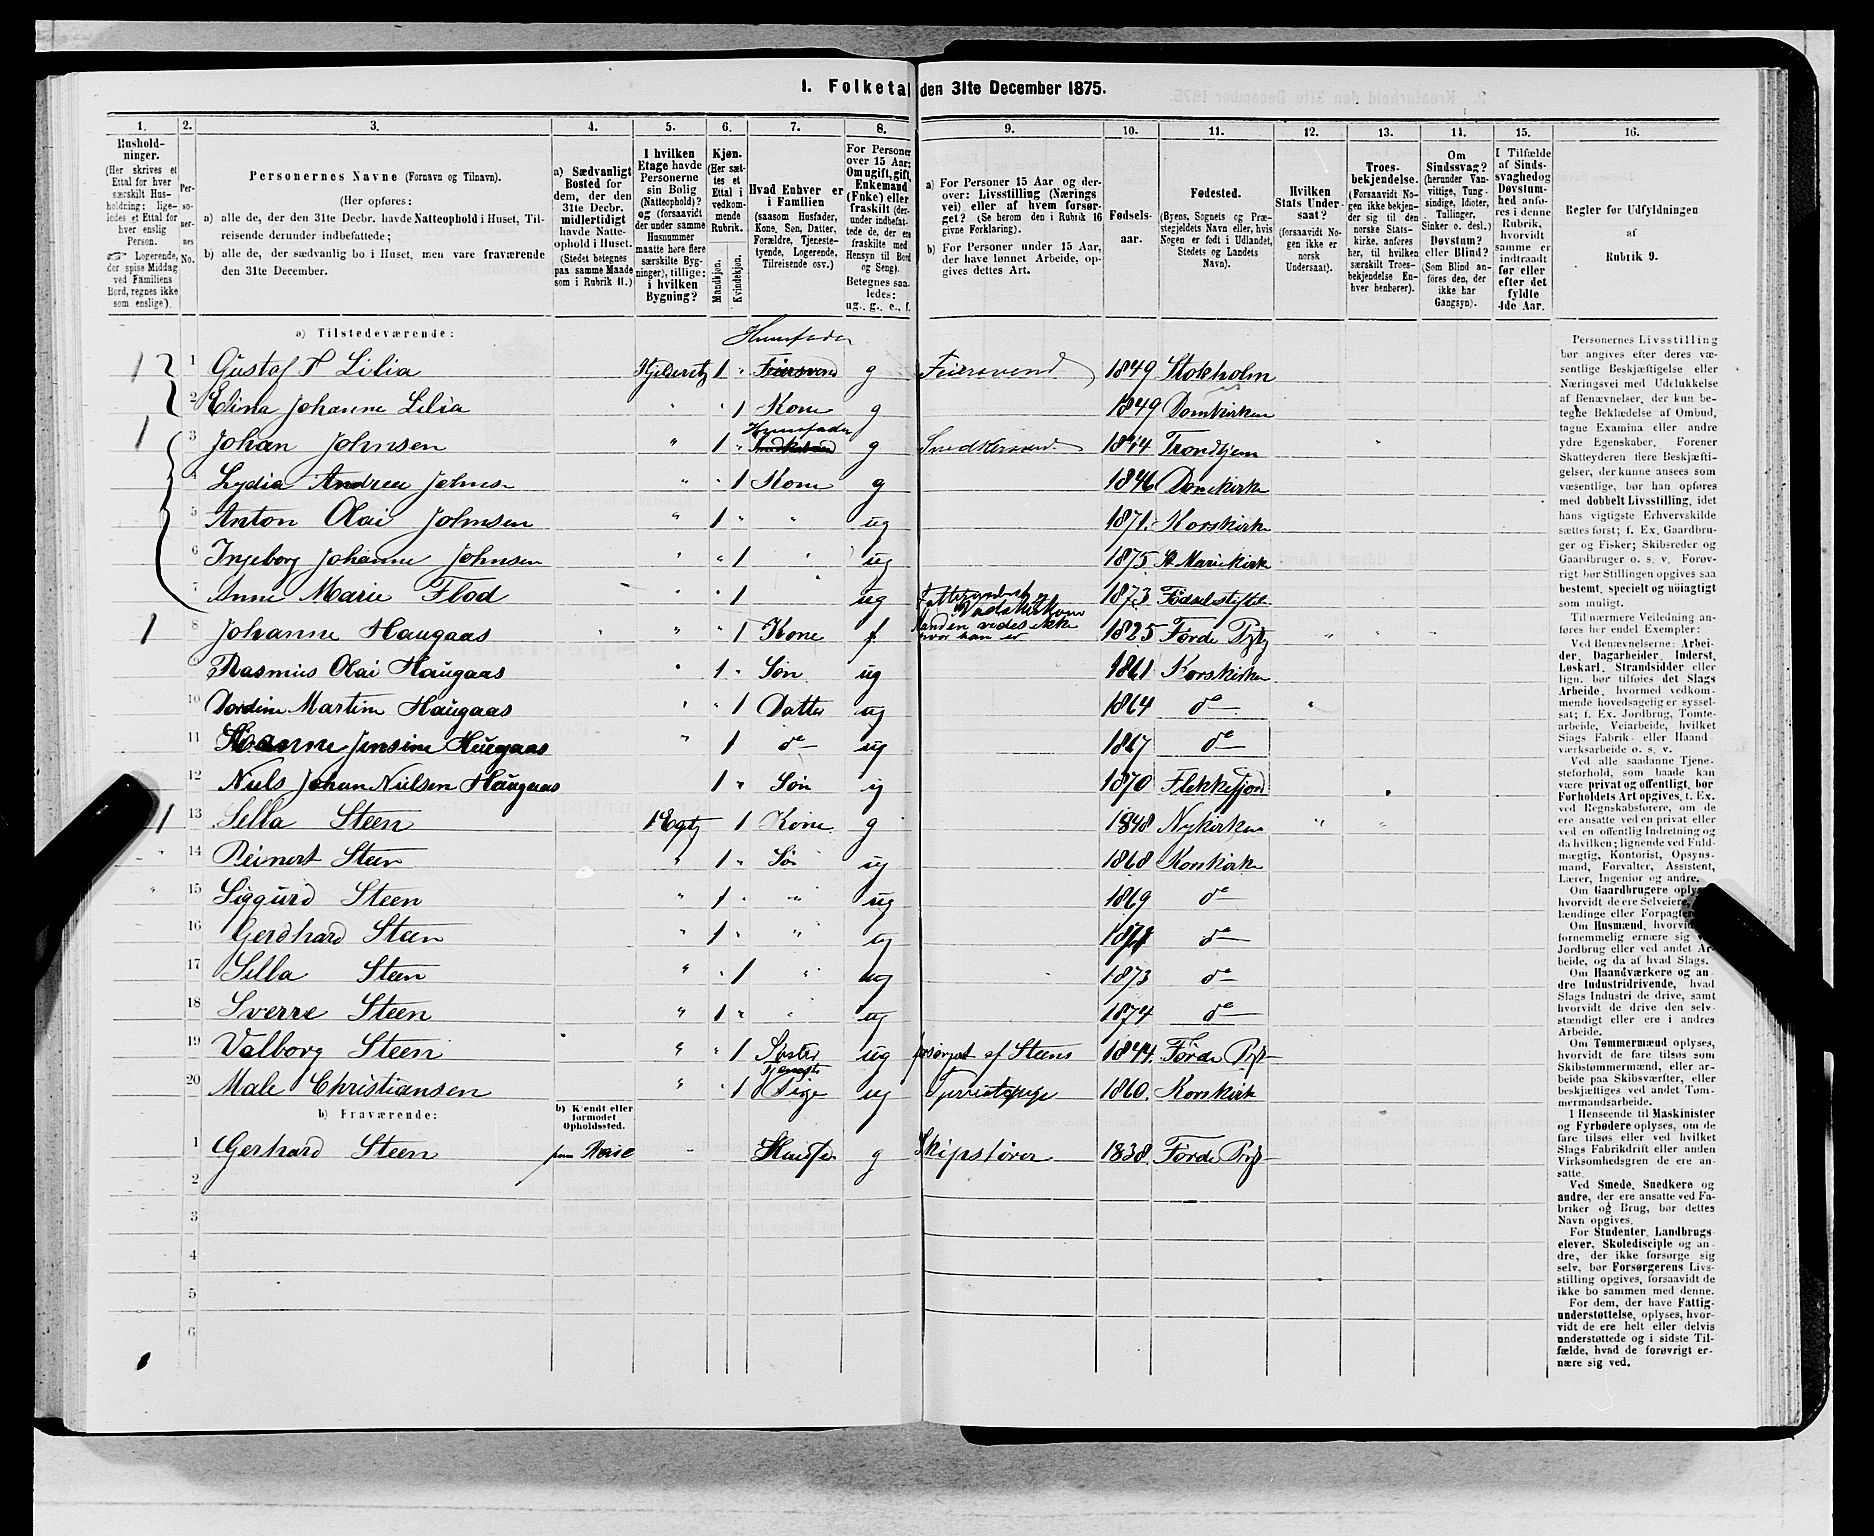 1. Folketal den 31te December 1875.
1. 2. 3. 4. 5. 6. 7. 8. 9. 10. 11. 12. 13. 14. 15. 16.
Husholdninger.
(Her skrives et Ettal for hver særskilt Husholdning; ligeledes et Ettal for hver enslig Person.
☞ Logerende, der spise Middag ved Familiens Bord, regnes ikke som enslige).
Personernes No.
Personernes Navne (Fornavn og Tilnavn).
(Her opføres:
a) alle de, der den 31te Decbr. havde Natteophold i Huset, Tilreisende derunder indbefattede;
b) alle de, der sædvanlig bo i Huset, men vare fraværende den 31te December.
a) Sædvanligt Bosted for dem, der den 31te Decbr. midlertidigt havde Natteophold i Huset. (Stedet betegnes paa samme Maade som i Rubrik 11.)
I hvilken Etage havde Personerne sin Bolig (Natteophold)? og (forsaavidt der under samme Husnummer maatte høre flere særskilte Bygninger), tillige: i hvilken Bygning?
Kjøn.
(Her sættes et Ettal i vedkommende Rubrik.
Mandkjøn. Kvindekjøn.
Hvad Enhver er i Familien
(saasom Husfader, Kone, Søn, Datter, Forældre, Tjenestetyende, Logerende, Tilreisende osv.)
For Personer over 15 Aar: Om ugift, gift, Enkemand (Enke) eller fraskilt (derunder indbefattede de, der ere fraskilte med Hensyn til Bord og Seng). Betegnes saaledes: ug., g., e., f.
a) For Personer 15 Aar og derover: Livsstilling (Næringsvei) eller af hvem forsørget? (Se herom den i Rubrik 16 givne Forklaring).
b) For Personer under 15 Aar, der have lønnet Arbeide, opgives dettes Art.
Fødselsaar.
Fødested.
(Byens, Sognets og Præstegjeldets Navn eller, hvis Nogen er født i Udlandet, Stedets og Landets Navn).
Hvilken Stats Undersaat?
(forsaavidt Nogen ikke er norsk Undersaat).
Troesbekjendelse.
(Forsaavidt Nogen ikke bekjender sig til den norske Statskirke, anføres her, til hvilken særskilt Troesbekjendelse Enhver henhører).
Om Sindssvag? (herunder Vanvittige, Tungsindige, Idioter, Tullinger, Sinker o. desl.) Døvstum? eller Blind? (Som Blind anføres den, der ikke har Gangsyn).
I Tilfælde af Sindssvaghed og Døvstumhed anføres i denne Rubrik, hvorvidt samme er indtraadt før eller efter det fyldte 4de Aar.
Regler for Udfyldningen af Rubrik 9.
a) Tilstedeværende:
Huusfader
1 1 Gustaf P Lilia Kjelderetg 1 " Feiersvend g Feiersvend 1849 Stokholm
2 Elina Johanne Lilia " " 1 Kone g 1849 Domkirken
Huusfader
1 3 Johan Johnsen " 1 " g Snedkersvend 1844 Trondhjem
4 Lydia Andrea Johnse " " 1 Kone g 1846 Domkirke
5 Anton Olai Johnsen " 1 " " ug 1871. Korskirke
6 Ingeborg Johanne Johnsen " " 1 " ug 1875. St Mariekirk
7 Anne Marie Flod " " 1 ug 1873 Fødselsstiftel.
Manden vides ikke
hvor han er
1 8 Johanne Haugaas " " 1 Kone f 1825 Førde Pgtg
9 Rasmus Olai Haugaas " 1 " Søn ug 1861 Korskirken
10 Dordine Martine Haugaas " " 1 Datter ug 1864 do
11 Hanne Jensine Haugaas " 1 do ug 1867 do
12 Niels Johan Nielsen Haugaas 1 " Søn ug 1870 Flekkefjord
1 13 Silla Steen 1 Etg 1 Kone g 1848 Nykirken
14 Reinert Steen " 1 " Søn ug 1868 Korskirke
15 Siggurd Steen " 1 " " ug 1869 do
16 Gerdhard Steen " 1 " " ug 1871 do
17 Silla Steen " " 1 " ug 1873 do
18 Sverre Steen " 1 " " ug 1874 do
19 Valborg Steen " " 1 Søster ug forsørget af Steens 1844. Førde Pgt
Tjeneste
20 Male Christiansen " 1 Pige ug Tjenestepige 1860. Korskirk
b) Fraværende:
b) Kjendt eller formodet Opholdssted.
1 Gerhard Steen paa Reise Huusfa g Skipsfører 1838. Førde Pgt
2
3
4
5
6
Personernes Livsstilling bør angives efter deres væsentlige Beskjæftigelse eller Næringsvei med Udelukkelse af Benævnelser, der kun betegne Beklædelse af Ombud, tagne Examina eller andre ydre Egenskaber. Forener Skatteyderen flere Beskjæftigelser, der kunne ansees som væsentlige, bør han opføres med dobbelt Livsstilling, idet hans vigtigste Erhvervskilde sættes først; f. Ex. Gaardbruger og Fisker; Skibsreder og Gaardbruger o. s. v. Forøvrigt bør Stillingen opgives saa bestemt, specielt og nøiagtigt som muligt.
Til nærmere Veiledning anføres her endel Exempler:
Ved Benævnelserne: Arbeider, Dagarbeider, Inderst, Løskarl, Strandsidder eller lign. bør tilføies det Slags Arbeide, hvormed vedkommende hovedsagelig er sysselsat; f. Ex. Jordbrug, Tomtearbeide, Veiarbeide, hvilket Slags Fabrik- eller Haandværksarbeide o. s. v.
Ved alle saadanne Tjenesteforhold, som baade kan være privat og offentligt, bør Forholdets Art opgives, t. Ex. ved Regnskabsførere, om de ere ansatte ved en privat eller ved en offentlig Indretning og da hvilken; lignende ved Fuldmægtig, Kontorist, Opsynsmand, Forvalter, Assistent, Lærer, Ingeniør og andre.
Om Gaardbrugere oplyses, hvorvidt de ere Selveiere, Leilændinge eller Forpagtere.
Om Husmænd, hvorvidt de fornemmelig ernære sig ved Jordbrug eller ved andet Arbeide, og da af hvad Slags.
Om Haandværkere og andre Industridrivende, hvad Slags Industri de drive, samt hvorvidt de drive den selvstændigt eller ere i andres Arbeide.
Om Tømmermænd oplyses, hvorvidt de fare tilsøs som Skibstømmermænd, eller arbeide paa Skibsværfter, eller beskjæftiges ved andet Tømmermandsarbeide.
I Henseende til Maskinister og Fyrbødere oplyses, om de fare tilsøs eller ved hvilket Slags Fabrikdrift eller anden Virksomhedsgren de ere ansatte.
Ved Smede, Snedkere og andre, der ere ansatte ved Fabriker og Brug, bør dettes Navn opgives.
For Studenter, Landbrugselever, Skoledisciple og andre, der ikke forsørge sig selv, bør Forsørgerens Livsstilling opgives, forsaavidt de ikke bo sammen med denne.
For dem, der have Fattigunderstøttelse, oplyses, hvorvidt de ere helt eller delvis understøttede og i sidste Tilfælde, hvad de forøvrigt ernære sig ved.